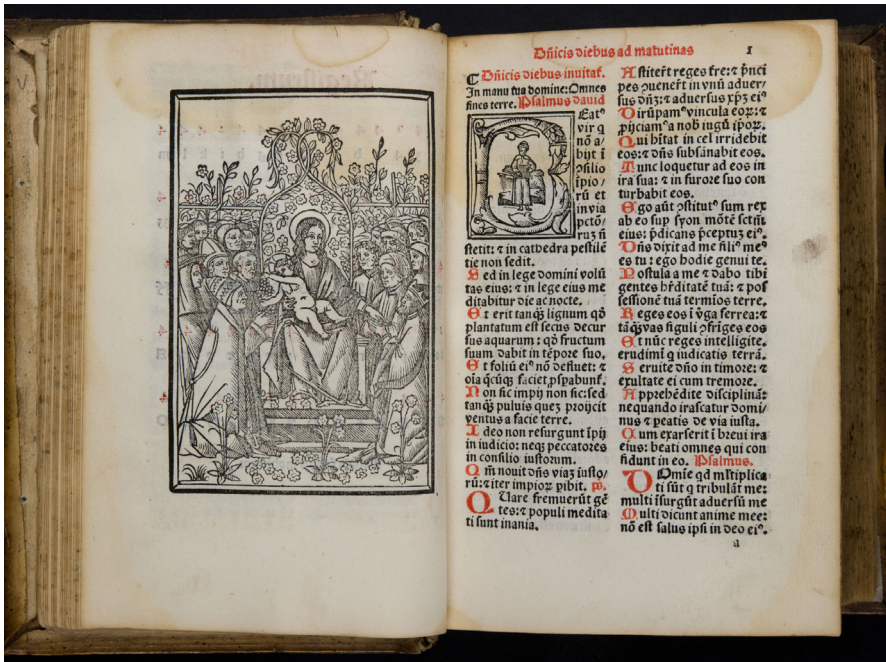 Dñicis diebus ad matutinas 1
Dñicis diebus inuitať.
In manu tua domine: Omnes
fines terre. Psalmus dauid
Eatꝰ
vir q
nõ a/
bijt ĩ
ꝯsilio
ĩpio/
rũ et
in via
pctõ/
rũ ñ
stetit: ⁊ in cathedra pestilẽ
tie non sedit.
Sed in lege domini volũ
tas eius: ⁊ in lege eius me
ditabitur die ac nocte.
Et erit tanqꝫ lignum qð
plantatum est secus decur
sus aquarum: qð fructum
suum dabit in tẽpore suo.
Et foliũ eiꝰ nõ defluet: ⁊
oĩa qcũqꝫ faciet ꝓspabunť.
Non sic impij non sic: sed
tanqꝫ puluis quez proijcit
ventus a facie terre.
Ideo non resurgunt ĩpij
in iudicio: neqꝫ peccatores
in consilio iustorum.
Qm̃ nouit dñs viaz iusto/
rũ: ⁊ iter impioꝝ pibit. ps.
Quare fremuerũt gẽ
tes: ⁊ populi medita
ti sunt inania.
Astiteřt reges ťre: ⁊ pñci
pes ꝯueneřt in vnũ aduer/
sus dñz: ⁊ aduersus xp̃z eiꝰ
Dirũpamꝰ vincula eoꝝ: ⁊
ꝓijciamꝰ a nob̃ iugũ ip̃oꝝ.
Qui hĩtat in cel irridebit
eos: ⁊ dñs subsãnabit eos.
Tunc loquetur ad eos in
ira sua: ⁊ in furore suo con
turbabit eos.
Ego aũt ꝯstitutꝰ sum rex
ab eo sup syon mõtẽ sctm̃
eius: p̃dicans p̃ceptuz eiꝰ.
Dñs dixit ad me filiꝰ meꝰ
es tu: ego hodie genui te.
Postula a me ⁊ dabo tibi
gentes hr̃ditatẽ tuã: ⁊ pos
sessionẽ tuã termĩos terre.
Reges eos ĩ ṽga ferrea: ⁊
tãqꝫ vas figuli ꝯfrĩges eos
Et nũc reges intelligite.
erudimĩ q iudicatis terrã.
Seruite dño in timore: ⁊
exultate ei cum tremore.
Apprehẽdite disciplinã:
nequando irascatur domi/
nus ⁊ peatis de via iusta.
Cum exarserit ĩ breui ira
eius: beati omnes qui con
fidunt in eo. Psalmus.
Domĩe qd ml̃tiplica
ti sũt q tribulãt me:
multi ĩsurgũt aduersũ me
Multi dicunt anime mee:
nõ est salus ipsi in deo eiꝰ.
a